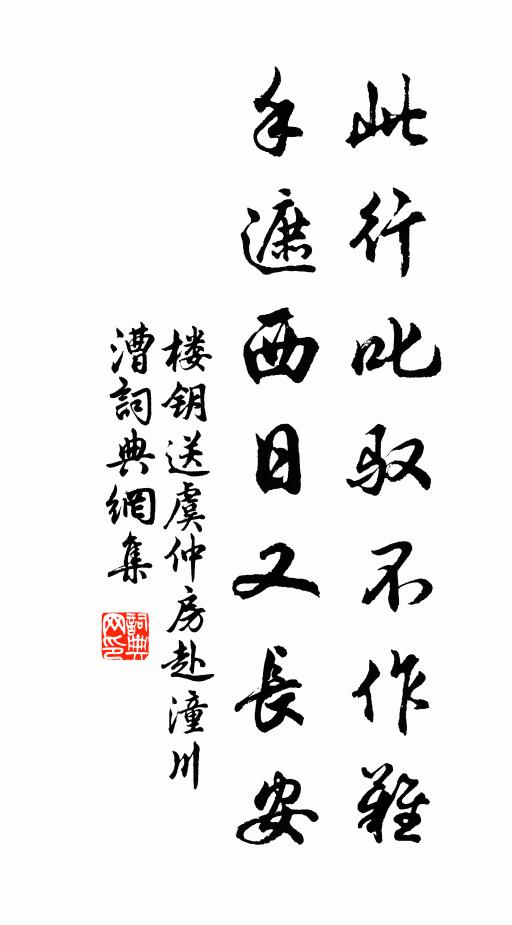 此行叱驭不作難
手遮西日又長安
楼钥送虞仲房赴潼川
漕詞典網集
詞典网印